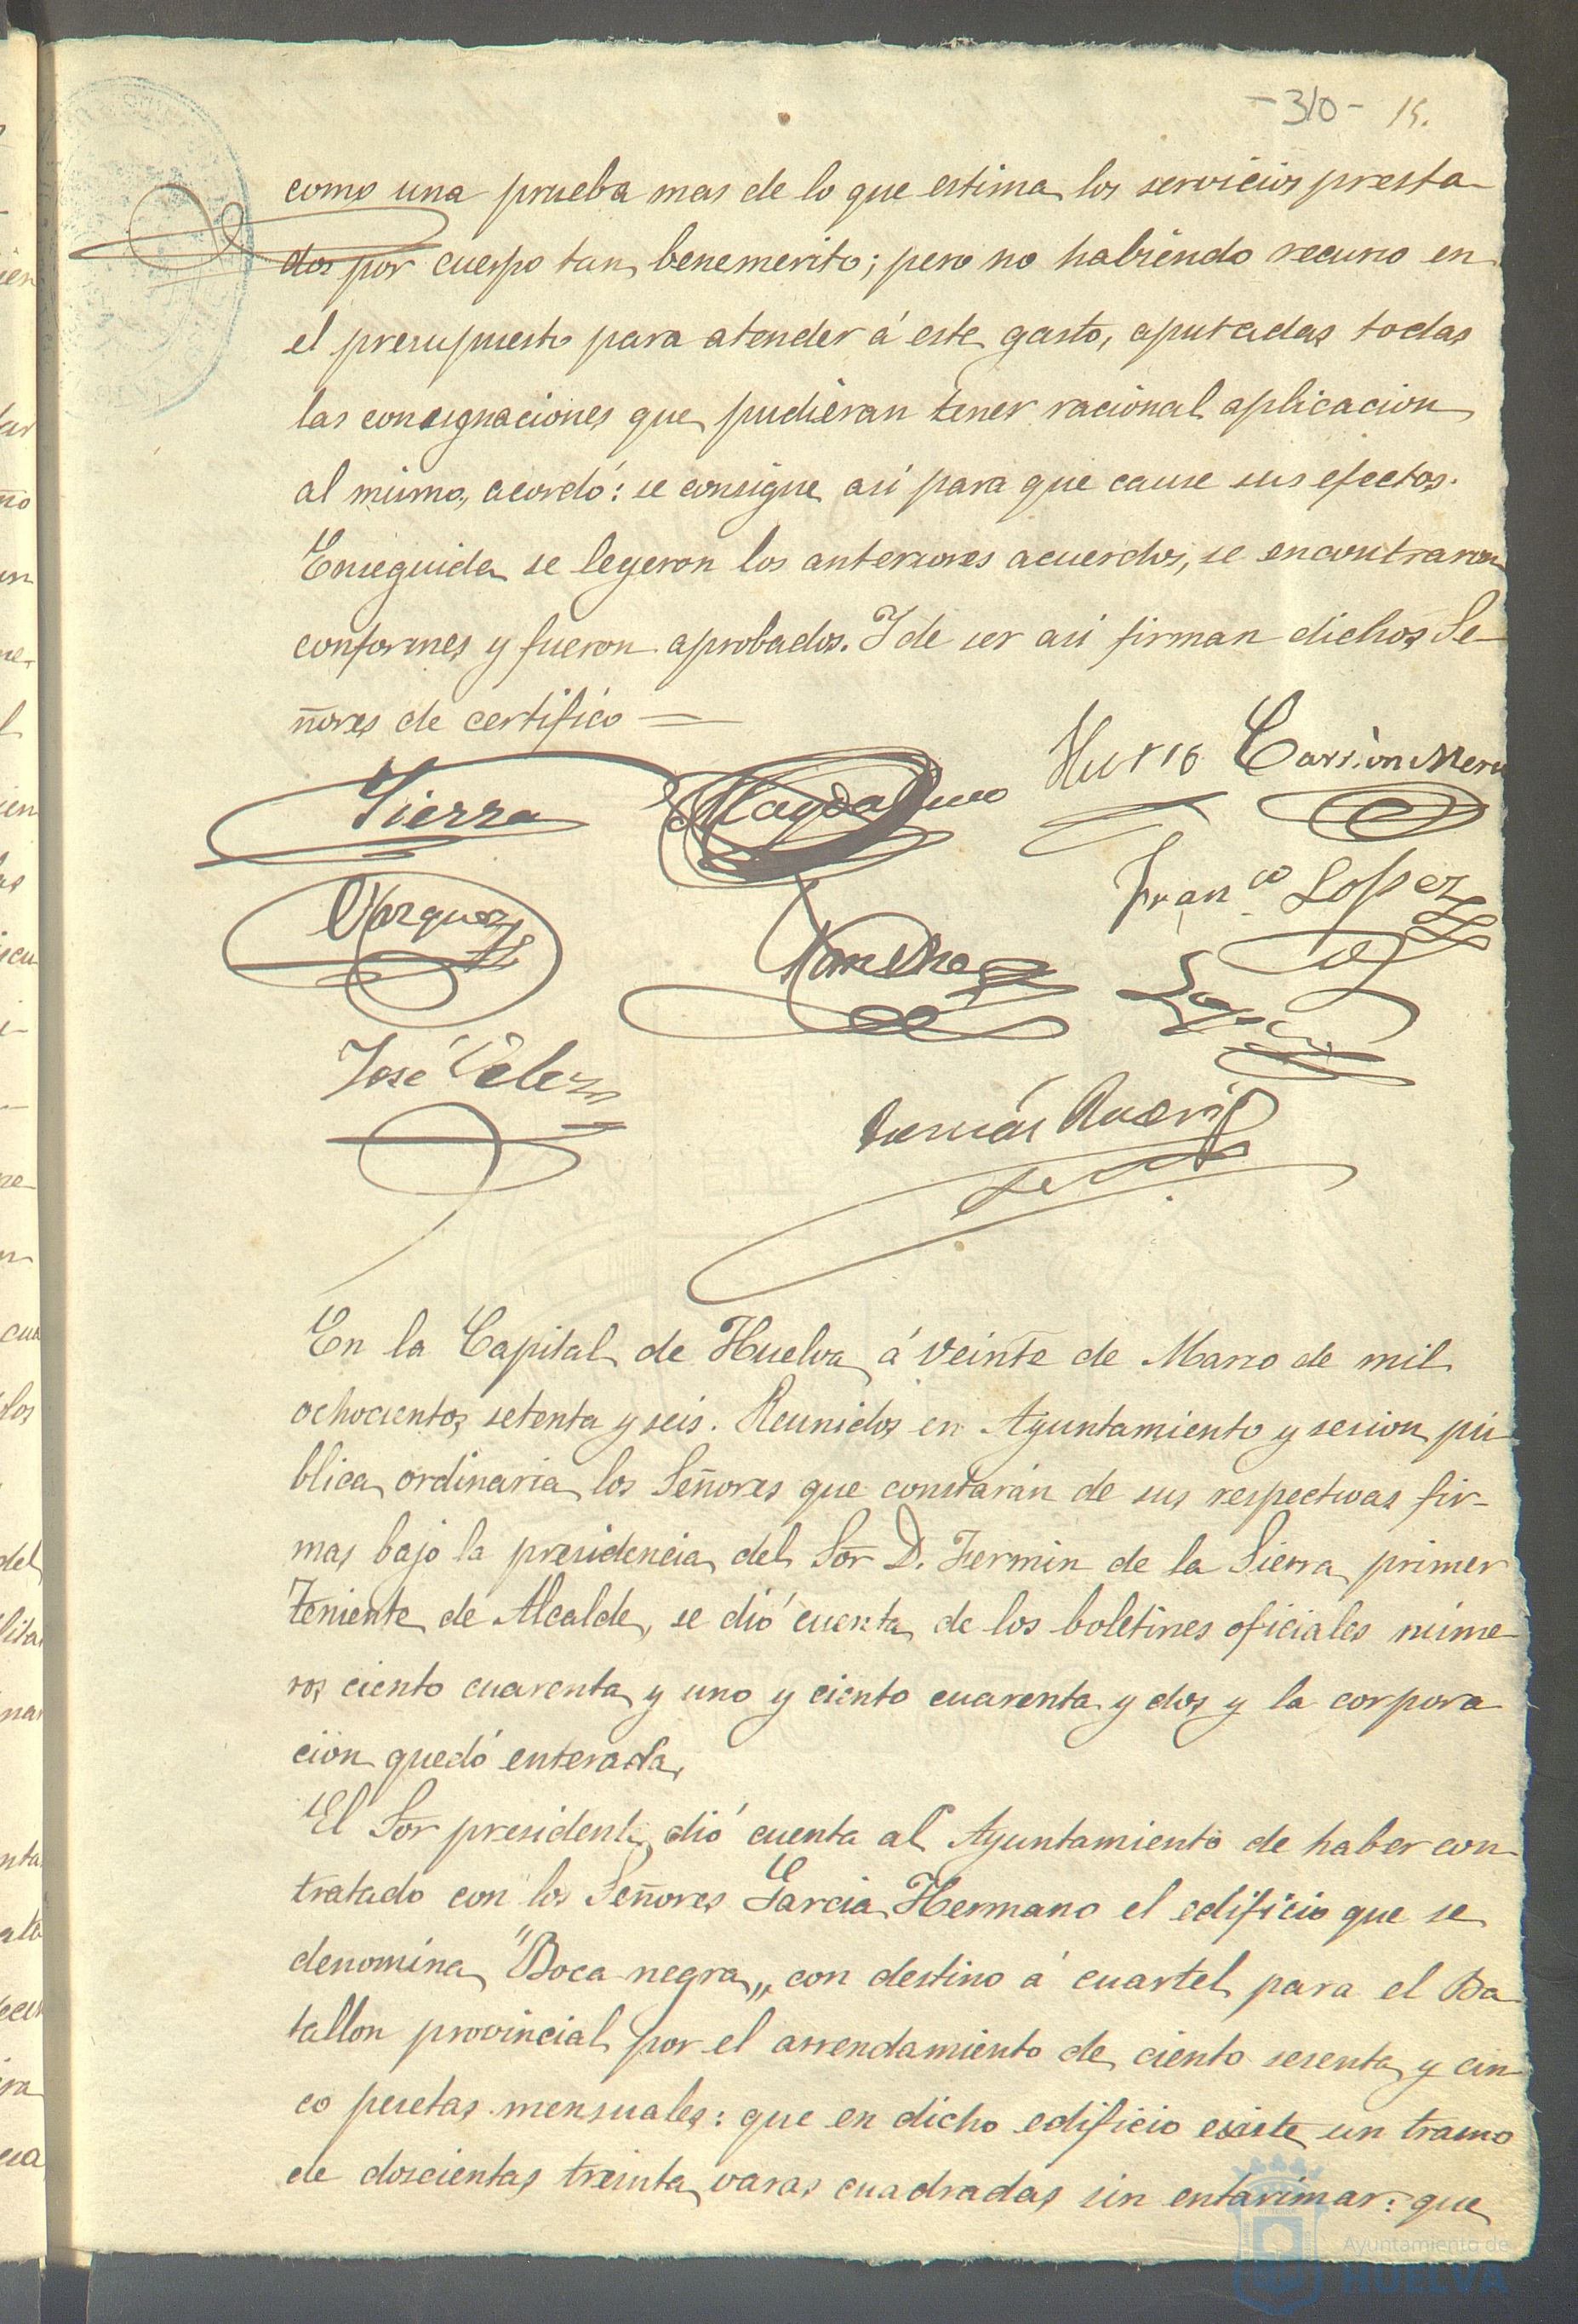 -310- 15.
como una prueba mas de lo que estima los servicios presta-
dos por cuerpo tan benemerito; pero no habiendo recurso en
el presupuesto para atender á este gasto, apuradas todas
las consignaciones que pudieran tener racional aplicacion
al mismo, acordó: se consigne asi para que cause sus efectos.
Enseguida se leyeron los anteriores acuerdos, se encontraron
conformes y fueron aprobados. Y de ser asi firman dichos Se-
ñores de certifico =
Sierra Magdaleno Carrion Mero
Vazquez Franco Lopez
Sanchez Lopez
José Velez
Tomás
En la Capital de Huelva á veinte de Marzo de mil
ochocientos setenta y seis. Reunidos en Ayuntamiento y sesion pú
blica ordinaria los Señores que constarán de sus respectivas fir-
mas bajo la presidencia del Sor D. Fermin de la Sierra primer
Teniente de Alcalde, se dió cuenta de los boletines oficiales núme
ros ciento cuarenta y uno y ciento cuarenta y dos y la corpora
cion quedó enterada.
El Sor presidente dió cuenta al Ayuntamiento de haber con
tratado con los Señores Garcia Hermano el edificio que se
denomina "Boca negra„ con destino á cuartel para el Ba
tallon provincial por el arrendamiento de ciento sesenta y cin
co pesetas mensuales: que en dicho edificio existe un tramo
de doscientas treinta varas cuadradas sin entarimar: que
Ayuntamiento de
HUELVA